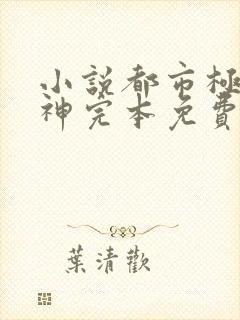 小說都市極
神完本免費
葉清歡